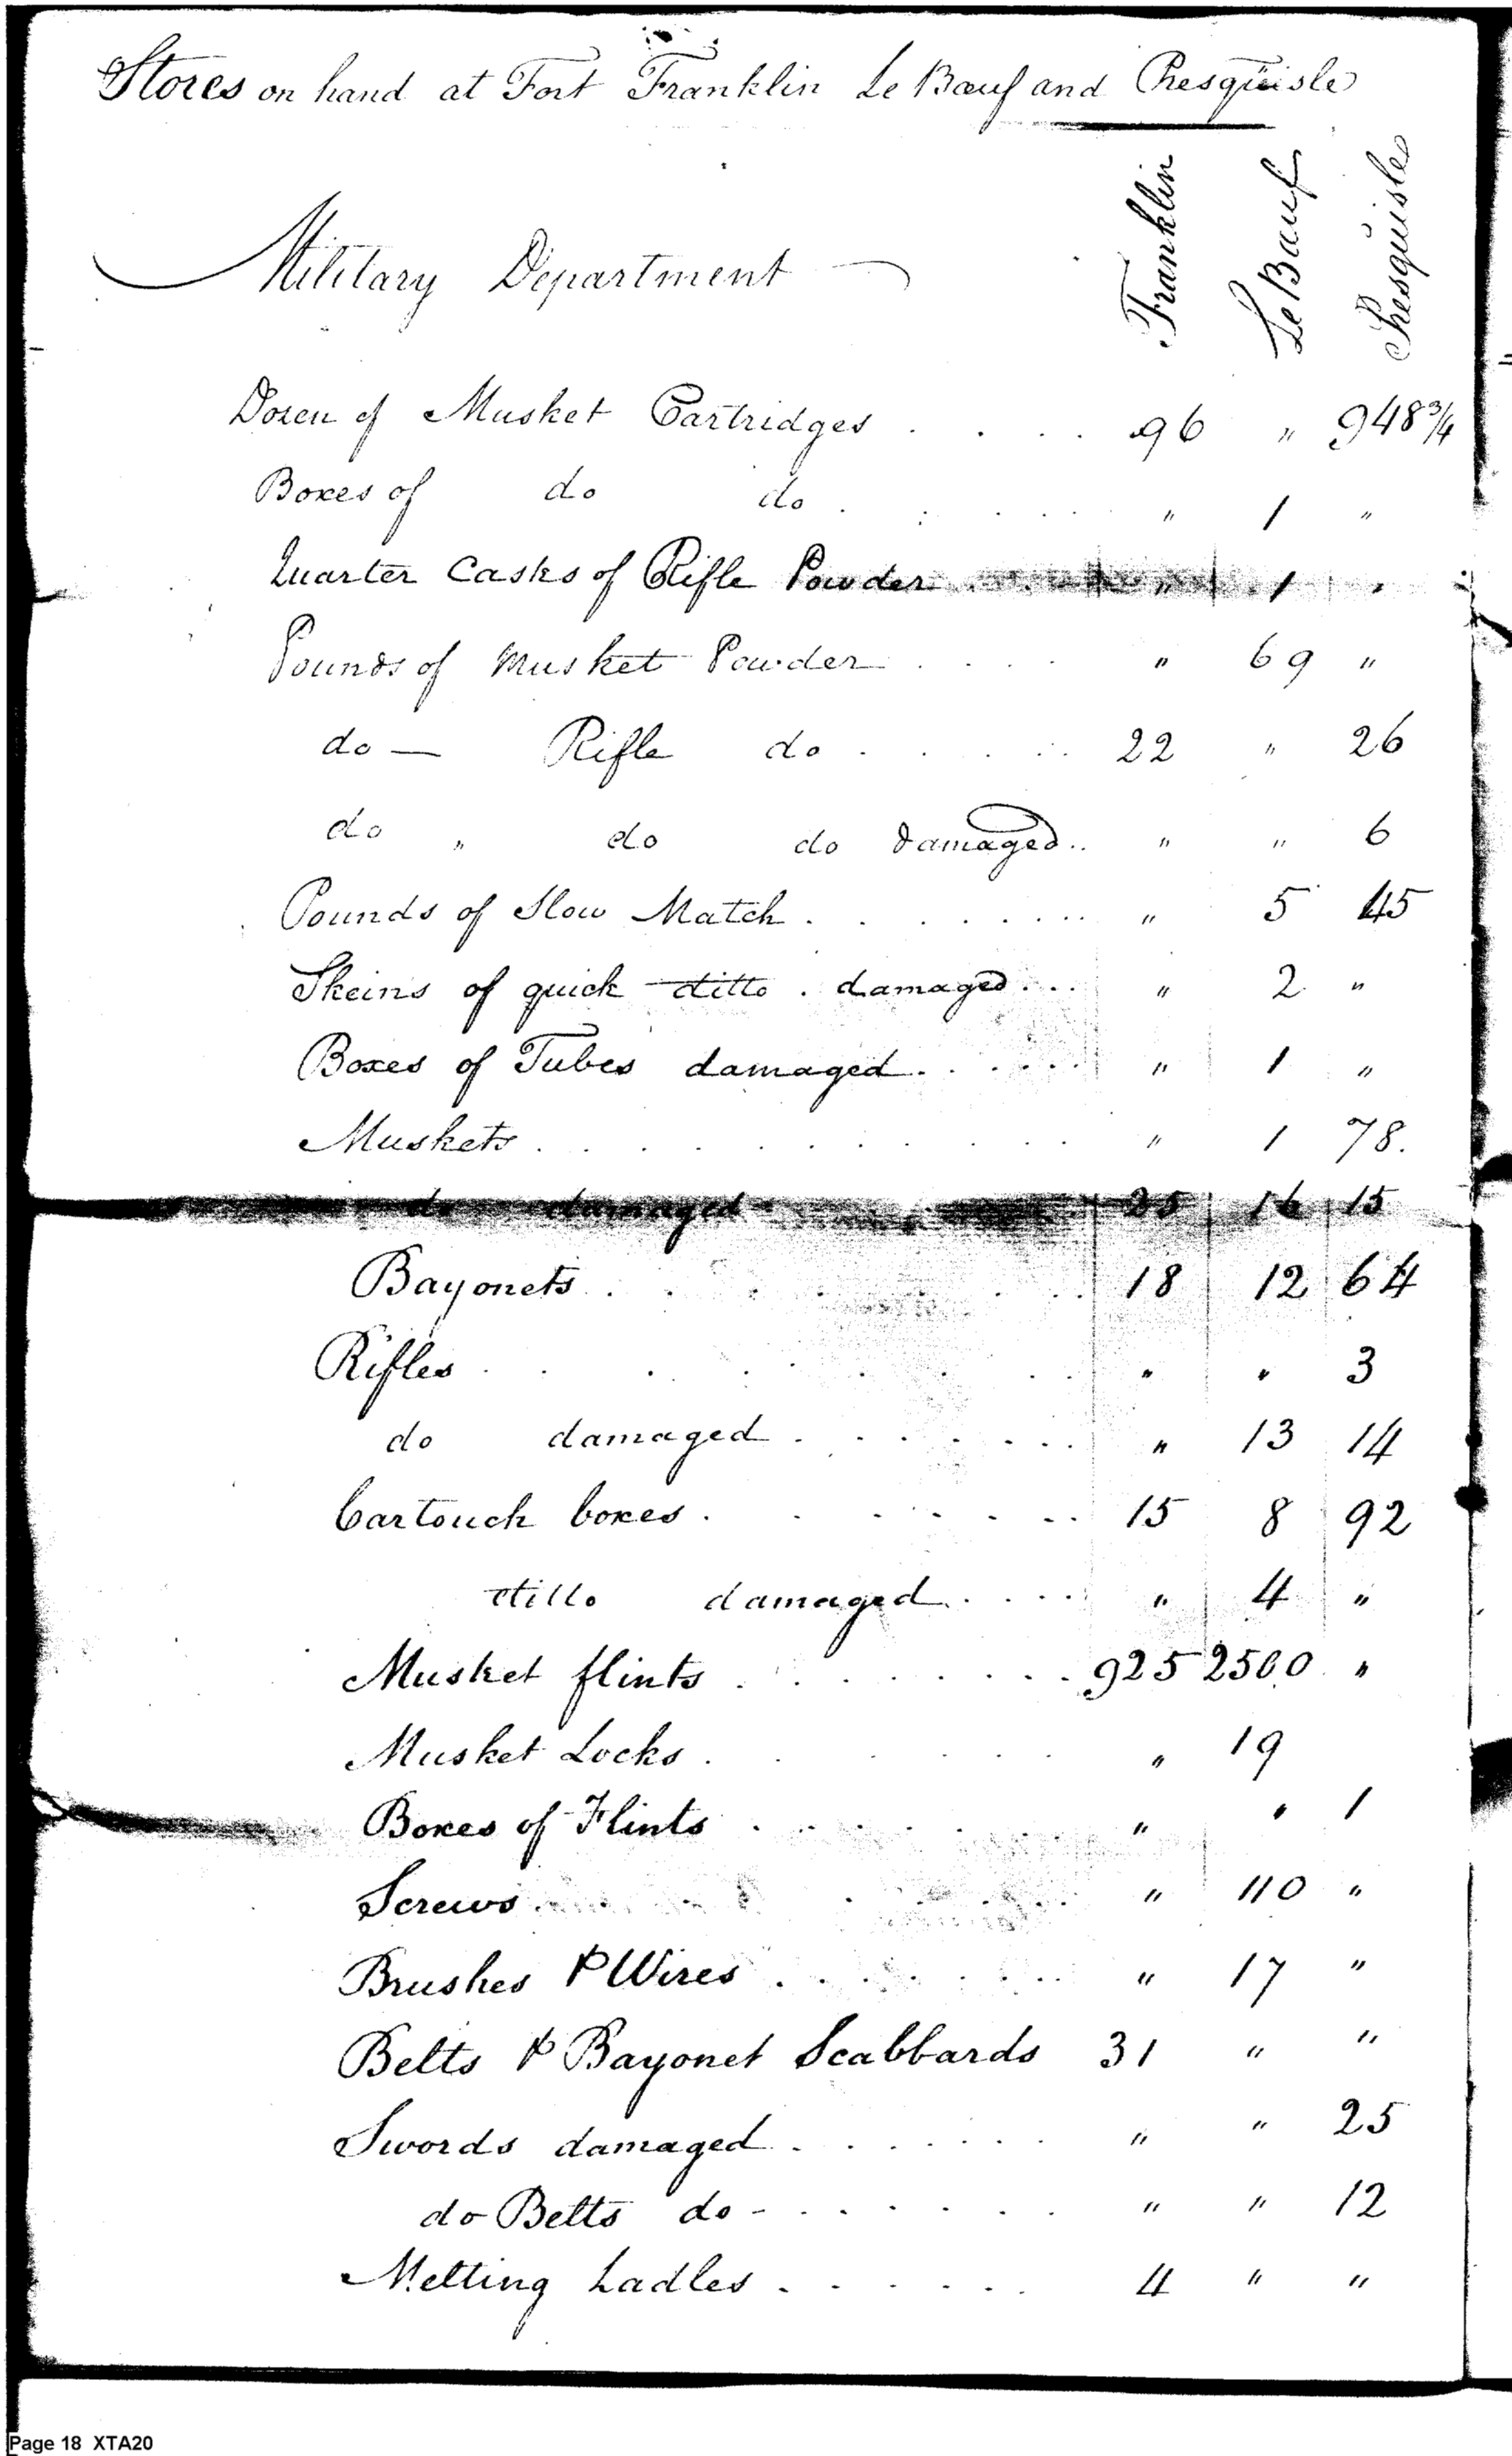 Stores on hand at Fort Franklin Le Bœuf and Presquisle
Military Department
Franklin
Le Bœuf
Presquisle
Dozen of Musket Cartridges . . . . 96 " 948 3/4
Boxes of do do . . . . . " 1 "
Quarter Casks of Rifle Powder " 1 "
Pounds of Musket Powder . . . . " 69 "
do — Rifle do . . . . . 22 " 26
do " do do damaged.. " " 6
Pounds of Slow Match . . . . . . . " 5 45
Skeins of quick ditto . damaged . . . " 2 "
Boxes of Tubes damaged . . . . . . " 1 "
Muskets . . . . . . . . . . " 1 78.
do damaged 25 16 15
Bayonets . . . . . . . . 18 12 64
Rifles . . . . . . . . " " 3
do damaged . . . . . . . " 13 14
Cartouch boxes . . . . . . . 15 8 92
ditto damaged . . . . " 4 "
Musket flints . . . . . . . . 925 2500 "
Musket Locks . . . . . . " 19
Boxes of Flints . . . . . . " " 1
Screws . . . . . . . " 110 "
Brushes & Wires . . . . . . . " 17 "
Belts & Bayonet Scabbards 31 " "
Swords damaged . . . . . . . " " 25
do Belts do - . . . . . . " " 12
Melting Ladles . . . . . . 4 " "
Page 18 XTA20